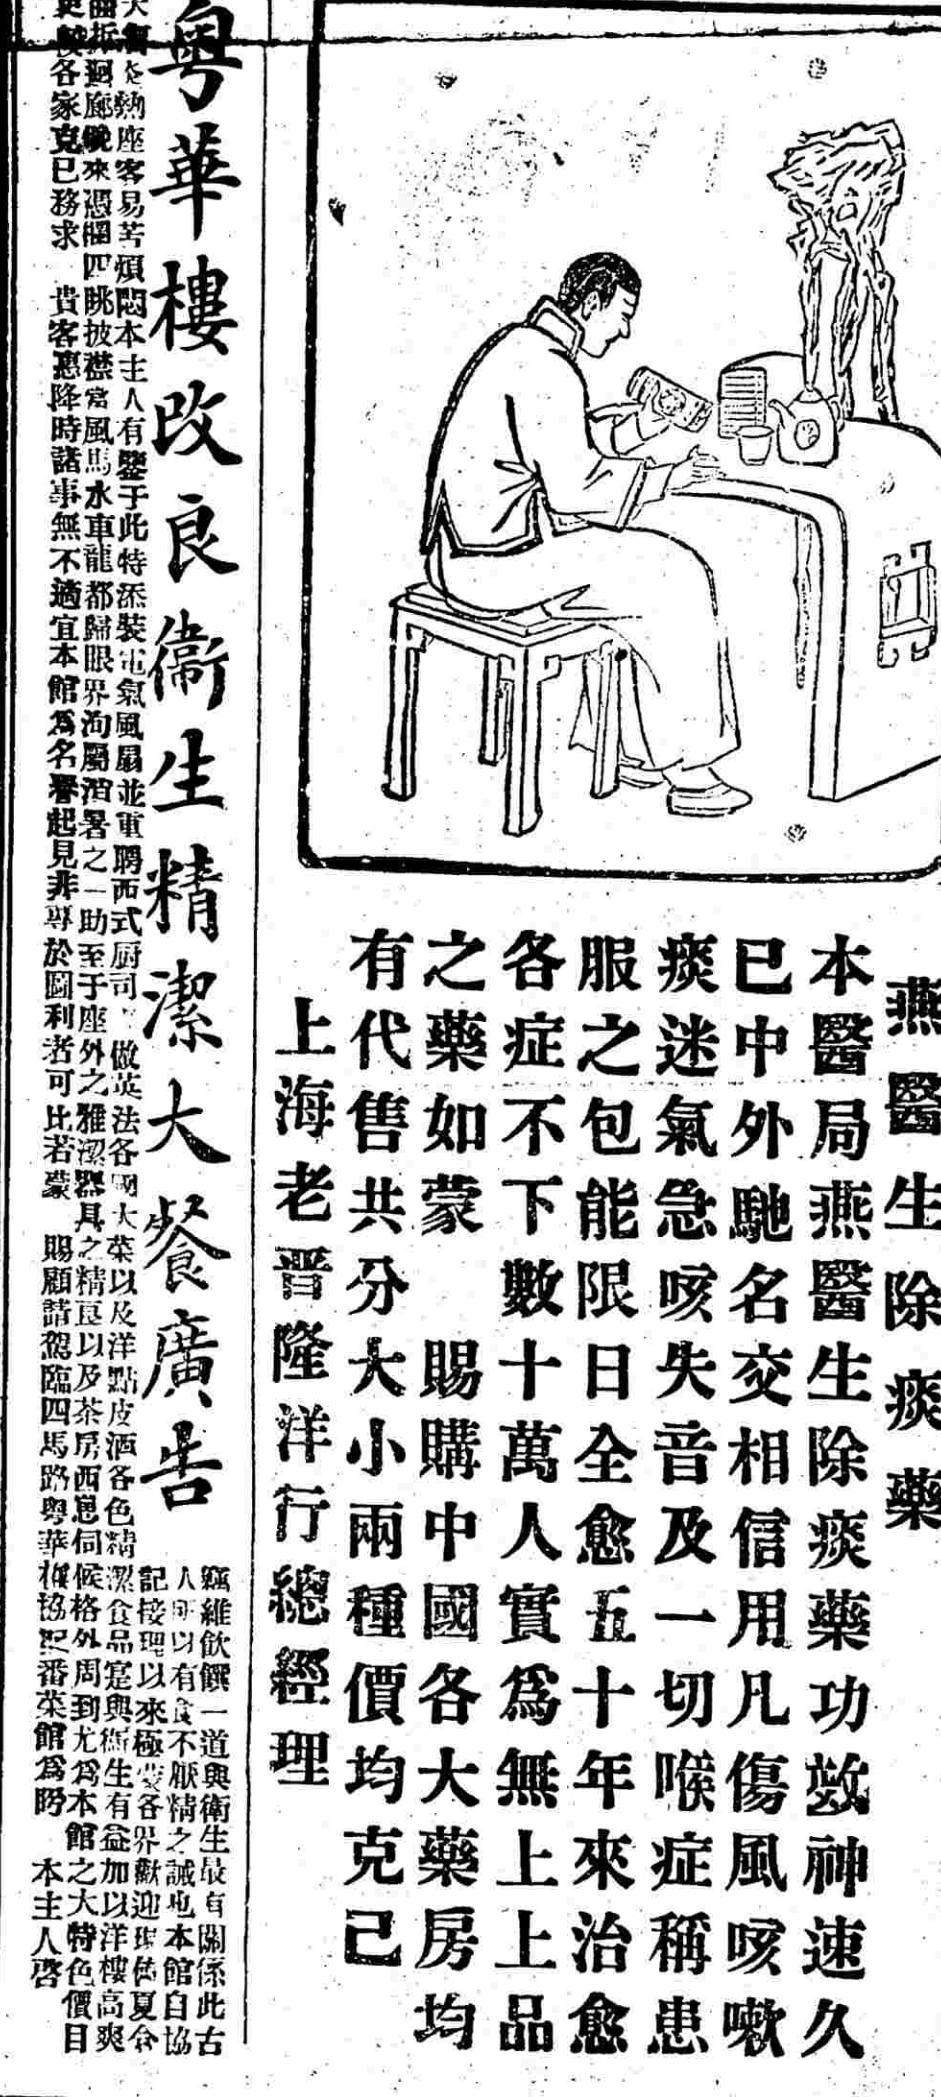 燕醫生除痰藥
本醫局燕醫生除痰藥功效神速久
已中外馳名交相信用凡傷風咳嗽
痰迷氣急咳失音及一切喉症稱患
服之包能限日全愈五十年來治愈
各症不下數十萬人實爲無上上品
之藥如蒙　賜購中國各大藥房均
有代售共分大小兩種價均克己
上海老晋隆洋行總經理
粤華樓改良衞生精潔大餐廣告
竊維飲饌一道與衛生最有關係此古
人所以有食不厭精之誡也本館自協
記接理以來極蒙各界歡迎現值夏令
天氣炎熱座客易苦煩悶本主人有鑒于此特添裝電氣風扇並重聘西式厨司倣英法各國大菜以及洋點皮酒各色精
潔食品寔與衛生有益加以洋樓高爽
曲折迴廊晚來憑欄四眺披襟當風馬水車龍都歸眼界洵屬消暑之一助至于座外之雅潔器具之精良以及茶房西崽伺候格外周到尤爲本館之大特色價目
更較各家克已務求　貴客惠降時諸事無不適宜本館爲名譽起見非專於圖利者可比若蒙　賜顧請駕臨四馬路粤華樓協記番菜館爲盼　本主人啓